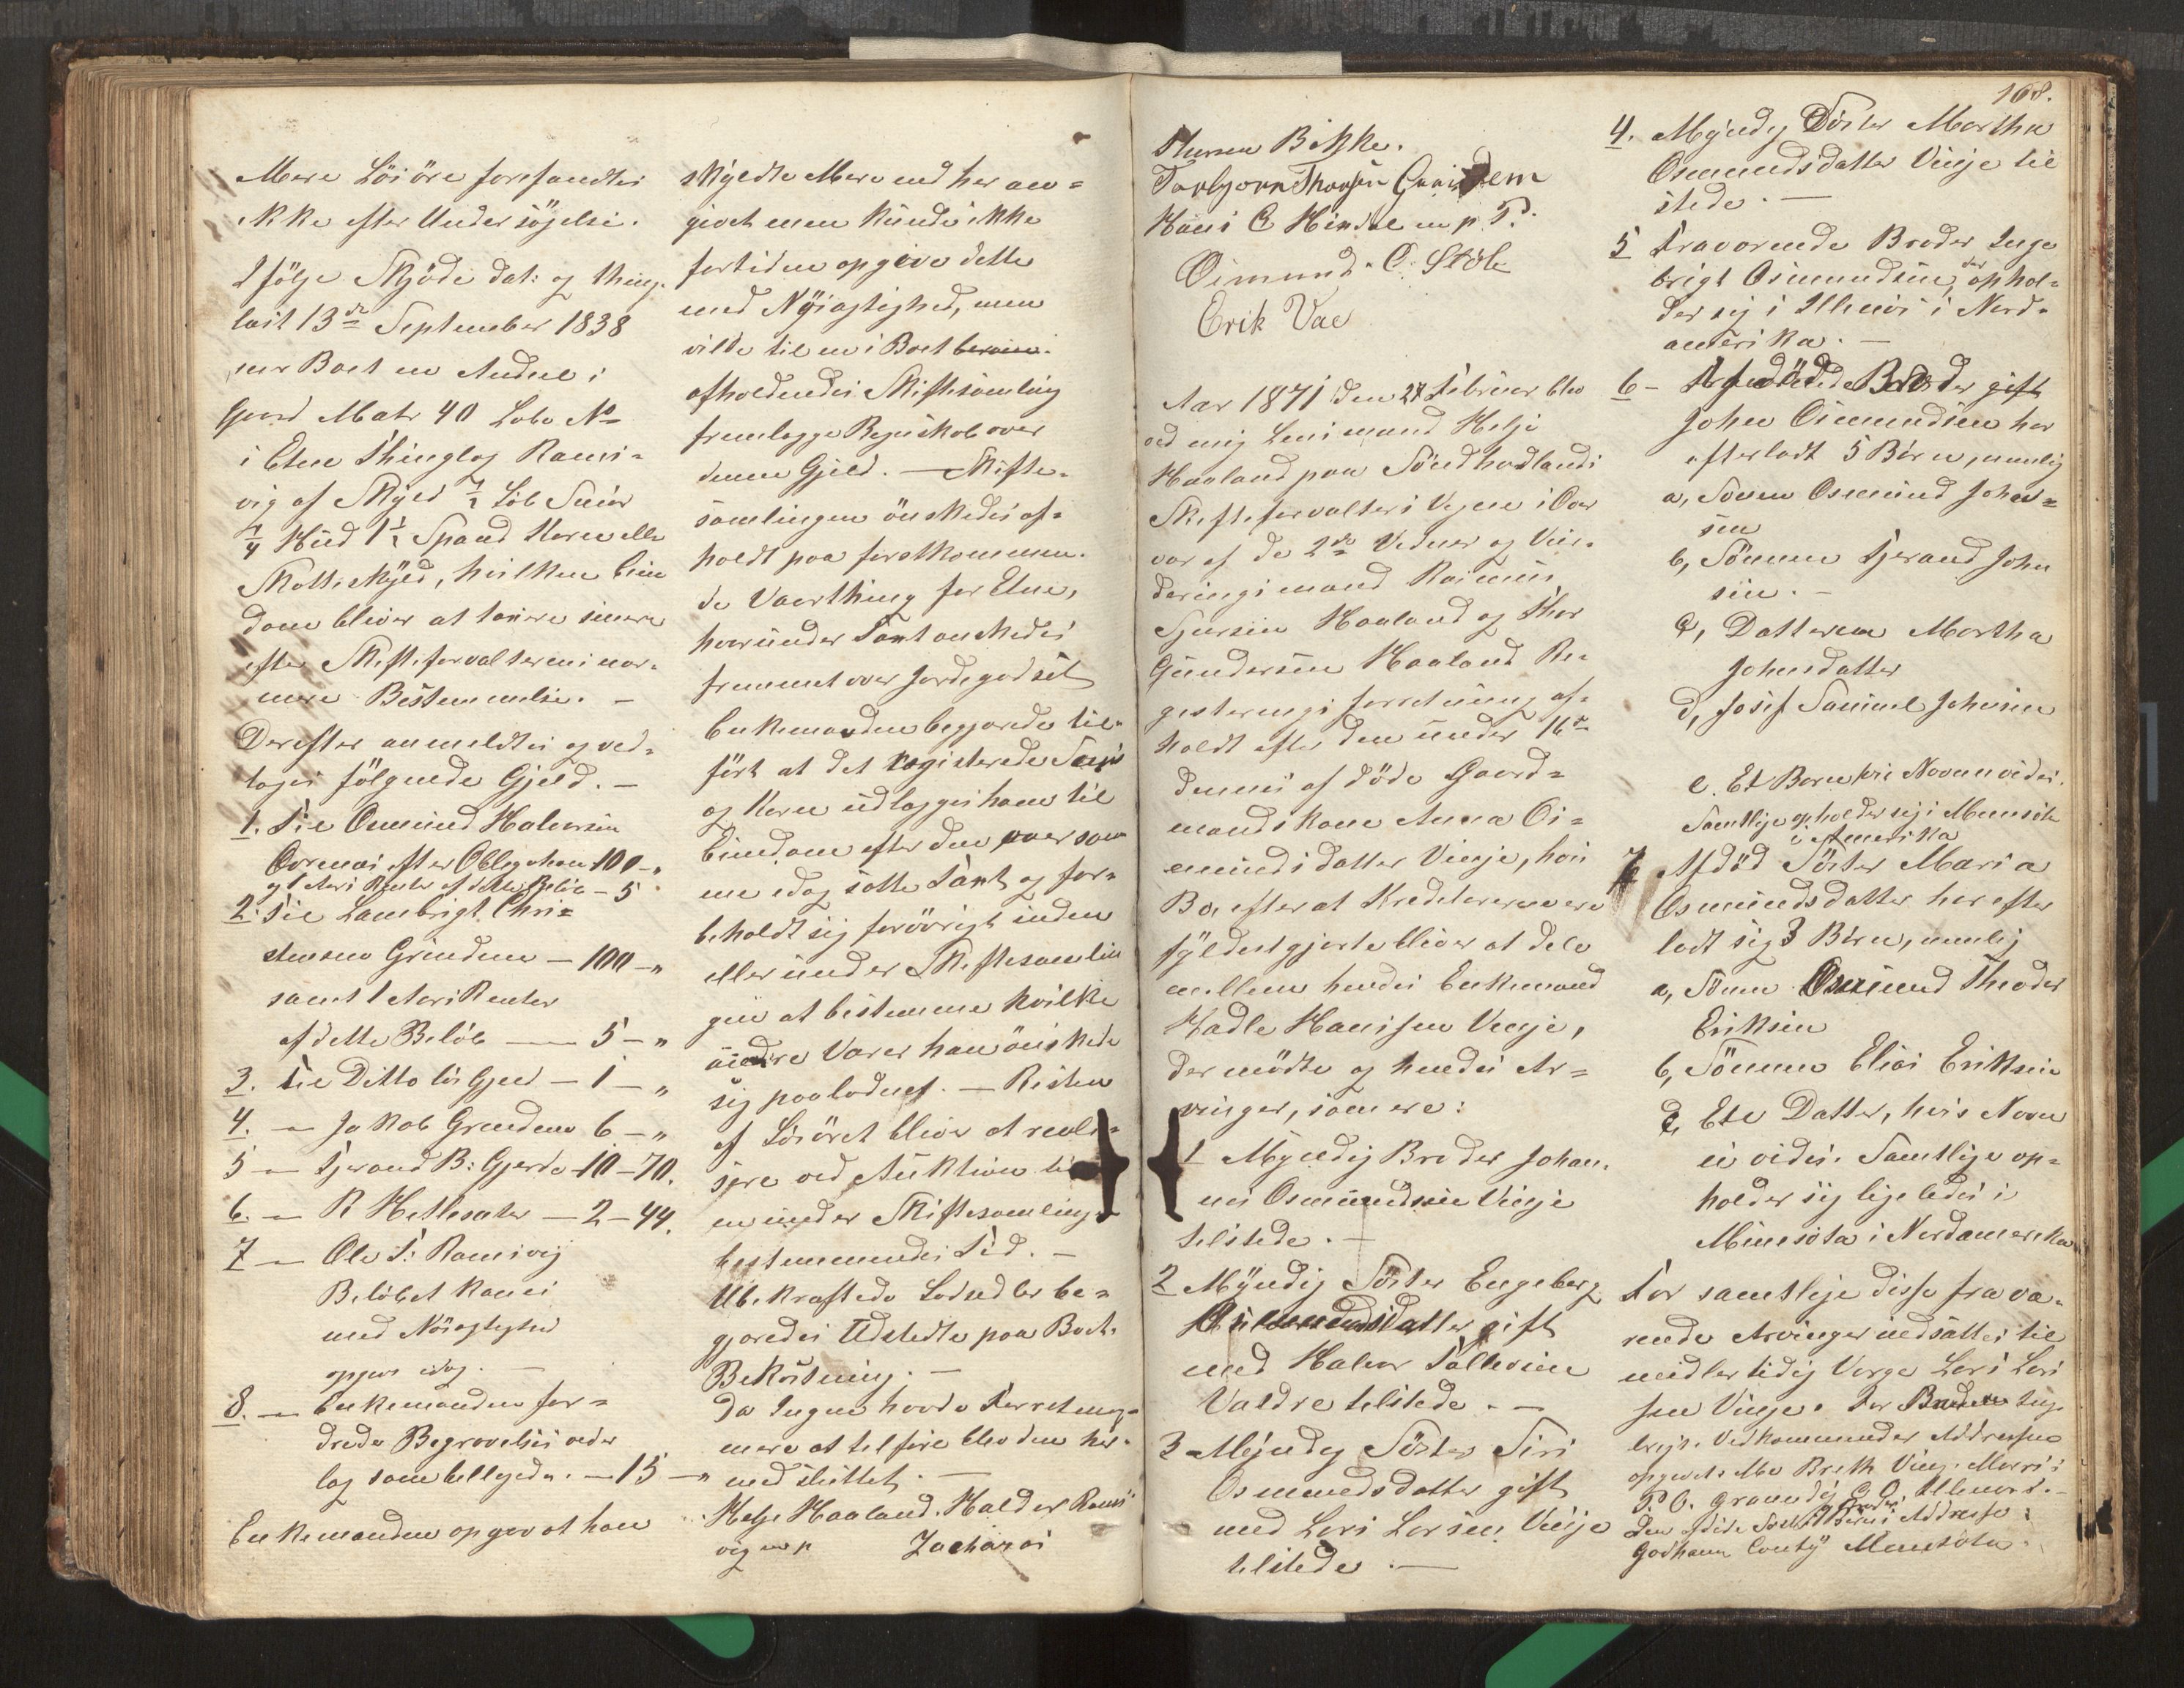 Mere Lösöre forefandtes
ikke efter Undersögelse.
I fölge Skjöde dat: og thing-
läst 13de September 1838
eier Boet en Andeel i
Gaard Matr 40 Löbe No
i Etne Thinglag Rams-
vig af Skyld 1/2 Löb Smör
1/4 Hud 1 1/2 Spand Korn eller
Skatteskyld, hvilken Eien
dom bliver at taxere senere
efter Skifteforvalterens nær-
mere Bestemmelse. —
Derefter anmeldtes og ved-
toges fölgende Gjeld. —
1. Til Osmund Halvorsen
efter Obligation 100 - "
og 1 Aars Renter af dette Belöb - 5
2. Til Lambrigt Chri=
stensen Grindem — 100 - "
samt 1 Aars Renter
af dette Belöb — 5 - "
3. Til Ditto lös Gjeld — 1 — "
4. — Jakob Grindem 6 - "
5 — Tjerand B: Gjerde 10 - 70.
6. — R Hetlesater — 2 - 44.
7 — Ole T: Ramsvig
Belöbet kan ei
med Nöiagtighed
opgives idag. —
8. — Enkemanden for=
drede Begravelses veder
lag som billigedes. — 15 — "
Enkemanden opgav at han
skyldte Mere end her an=
givet men kunde ikke
fortiden opgive dette
med Nöiagtighed, men
vilde til en i Boet
afholdendes Skiftesamling
fremlægge Regnskab over
denne Gjeld. — Skifte-
samlingen önskedes af-
holdt paa förstkommen-
de Vaarthing for Etne,
hvorunder Taxt önskedes
fremmet over Jordegodset
Enkemanden begjærede til-
fört at det registerede
og Korn udlægges ham til
Eiendom efter den over samme
idag satte Taxt og for-
beholdt sig forövrigt inden
eller under Skiftesamlin
gen at bestemme hvilke
andre Varer han önskede
sig paalodnet. — Resten
af Lösöret bliver at reali-
sere ved Auktion til
en under Skiftesamlingen
bestemmende Tid. —
Ubekræftede Lodsedler be=
gjæredes Udstedte paa Boets
Bekostning. —
Da Ingen havde Forretning-
mere at tilföre blev den her-
med sluttet. —
Helje Haaland. Haldor Rams
vig m p Zacharias
Bitske.
Torbjorn Thorsen Grindem
Hans C Hindal m p P.
Osmund. O. Stöle
Erik Vae
168.
Aar 1871 den 24 Februar blev
ved mig Lensmand Helje
Haaland paa Söndhordlands
Skifteforvalters Vegne i Over
vær af de 2de Vidner og Vur-
deringsmænd Rasmus
Sjursen Haaland og Thor
Gundersen Haaland Re-
gisterings forretning af-
holdt efter den under 16de
dennes af döde Gaard=
mandskone Anna Os=
mundsdatter Vinje, hvis
Bo, efter at Kreditorerne ere
fyldestgjorte bliver at dele
mellem hendes Enkemand
Hadle Hansen Vinje,
der mödte og hendes Ar=
vinger, som ere:
1 Myndig Broder Johan-
nes Osmundsen Vinje
tilstede. —
2 Myndig Söster Engeborg
Osmundsdatter gift
med Halvor Tollevsen
Valdre tilstede. —
3 Myndig Söster Siri
Osmundsdatter gift
med Lars Larsen Vinje
tilstede. —
4. Myndig Söster Martha
Osmundsdatter Vinje til
stede. —
5 Fraværende Broder Inge
brigt Osmundsen, der ophol=
der sig i Illinois i Nord-
amerika. —
6 — Afdöde Broder gift
John Osmundsen har
efterladt 5 Börn, nemlig
a, Sönnen Osmund Johns=
sen
b, Sönnen Tjerand John
sen. —
c, Datteren Martha
Johnsdatter
d, Josef Samuel Johnsen
e. Et Barn hvis Navn ei vides.
Samtlige opholder sig i Menesota
i Amerika
7 Afdöd Söster Maria
Osmundsdatter har efter
ladt sig 3 Börn, nemlig
a, Sönnen Osmund Theodor
Eriksen
b, Sönnen Elias Eriksen
c, Een Datter, hvis Navn
ei vides. Samtlige op=
holder sig ligeledes i
Minesota i Nordamerika.
For samtlige disse fravæ-
rende Arvinger indsattes til
midlertidig Værge Lars Lar
sen Vinje. For Broderen Inge
brigt. Vedkommendes Addresse
opgivet: Vinje Morris
P. O. Grundy C O. Illinois. —
Den afdöde Sösters og Broders Börns Addresse:
Godhaun County Menesota.